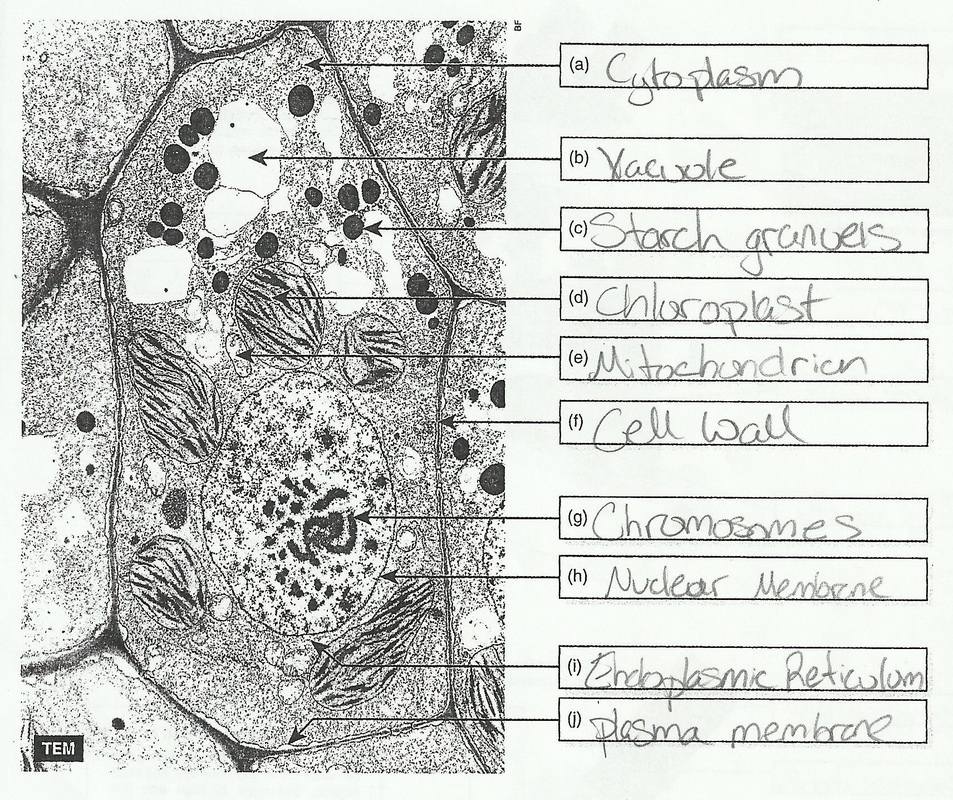 BF
(a) Cytoplasm
(b) Vacuole
(c) Starch granuels
(d) Chloroplast
(e) Mitochondrion
(f) Cell wall
(g) Chromosomes
(h) Nuclear Membrane
(i) Endoplasmic Reticulum
(j) plasma membrane
TEM